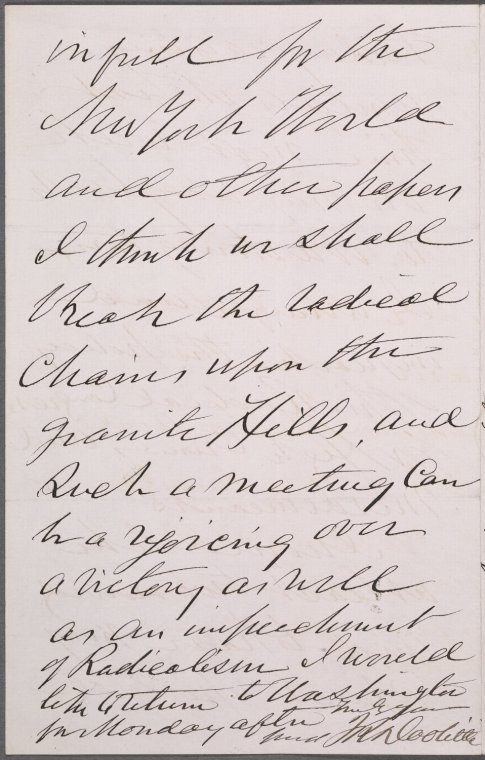 in full for the
New York World
and other papers
I think we shall
break the radical
chains upon the
granite Hills, and
such a meeting can
be a rejoicing over
a victory as well
as an impeachment
of Radicalism I would
like to return to Washington
for Monday after
J R Doolittle